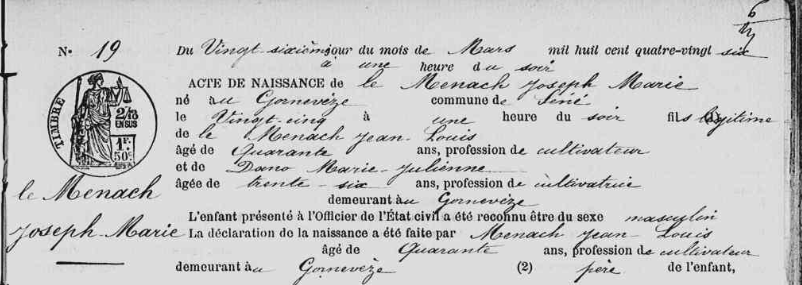 N° 19
Du Vingt-sixième jour du mois de Mars mil huit cent quatre-vingt six
à une heure du soir
ACTE DE NAISSANCE de le Menach Joseph Marie
né au Gornevèze commune de Séné
le Vingt-cinq à une heure du soir fils légitime
de le Menach Jean-Louis
âgé de Quarante ans, profession de cultivateur
et de Dano Marie-Julienne
âgée de trente-six ans, profession de cultivatrice
demeurant au Gornevèze
L'enfant présenté à l'Officier de l'État civil a été reconnu être du sexe masculin
La déclaration de la naissance a été faite par Menach Jean-Louis
âgé de Quarante ans, profession de cultivateur
demeurant au Gornevèze (2) père de l'enfant,
TIMBRE
2/10
EN SUS
1F.
50c.
le Menach
Joseph-Marie